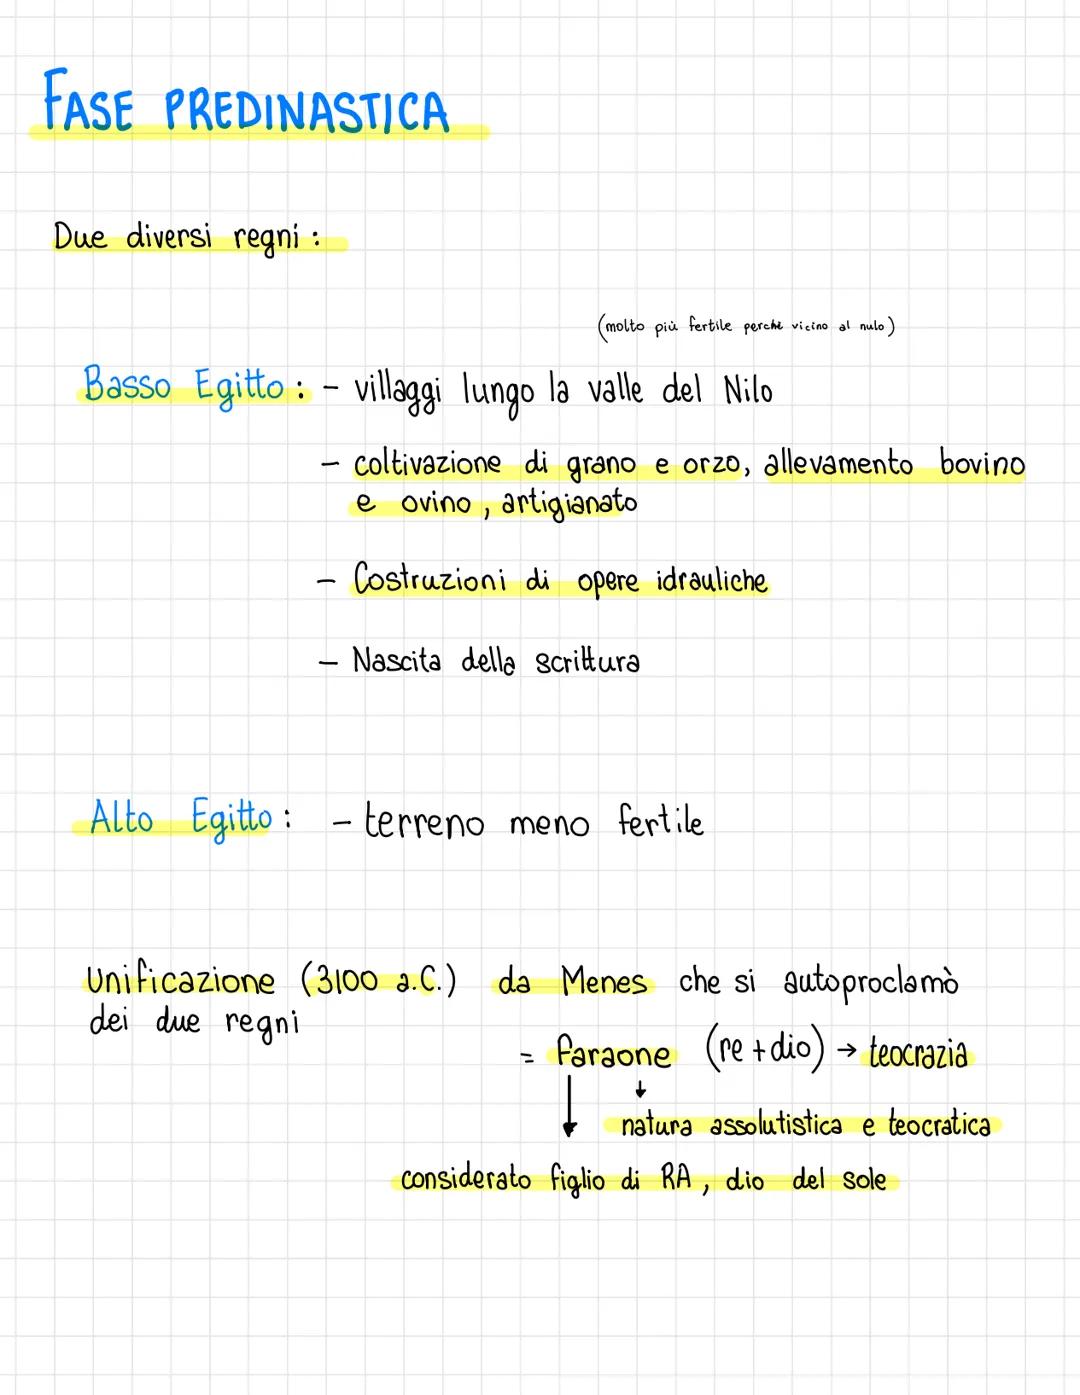 FASE PREDINASTICA
Due diversi regni :
(molto più fertile perchè vicino al nulo)
Basso Egitto : - villaggi lungo la valle del Nilo
- coltivazione di grano e orzo, allevamento bovino
e ovino, artigianato
- Costruzioni di opere idrauliche
- Nascita della scrittura
Alto Egitto : - terreno meno fertile
Unificazione (3100 a.C.) da Menes che si autoproclamò
dei due regni
= faraone (re + dio) → teocrazia
natura assolutistica e teocratica
considerato figlio di RA, dio del sole